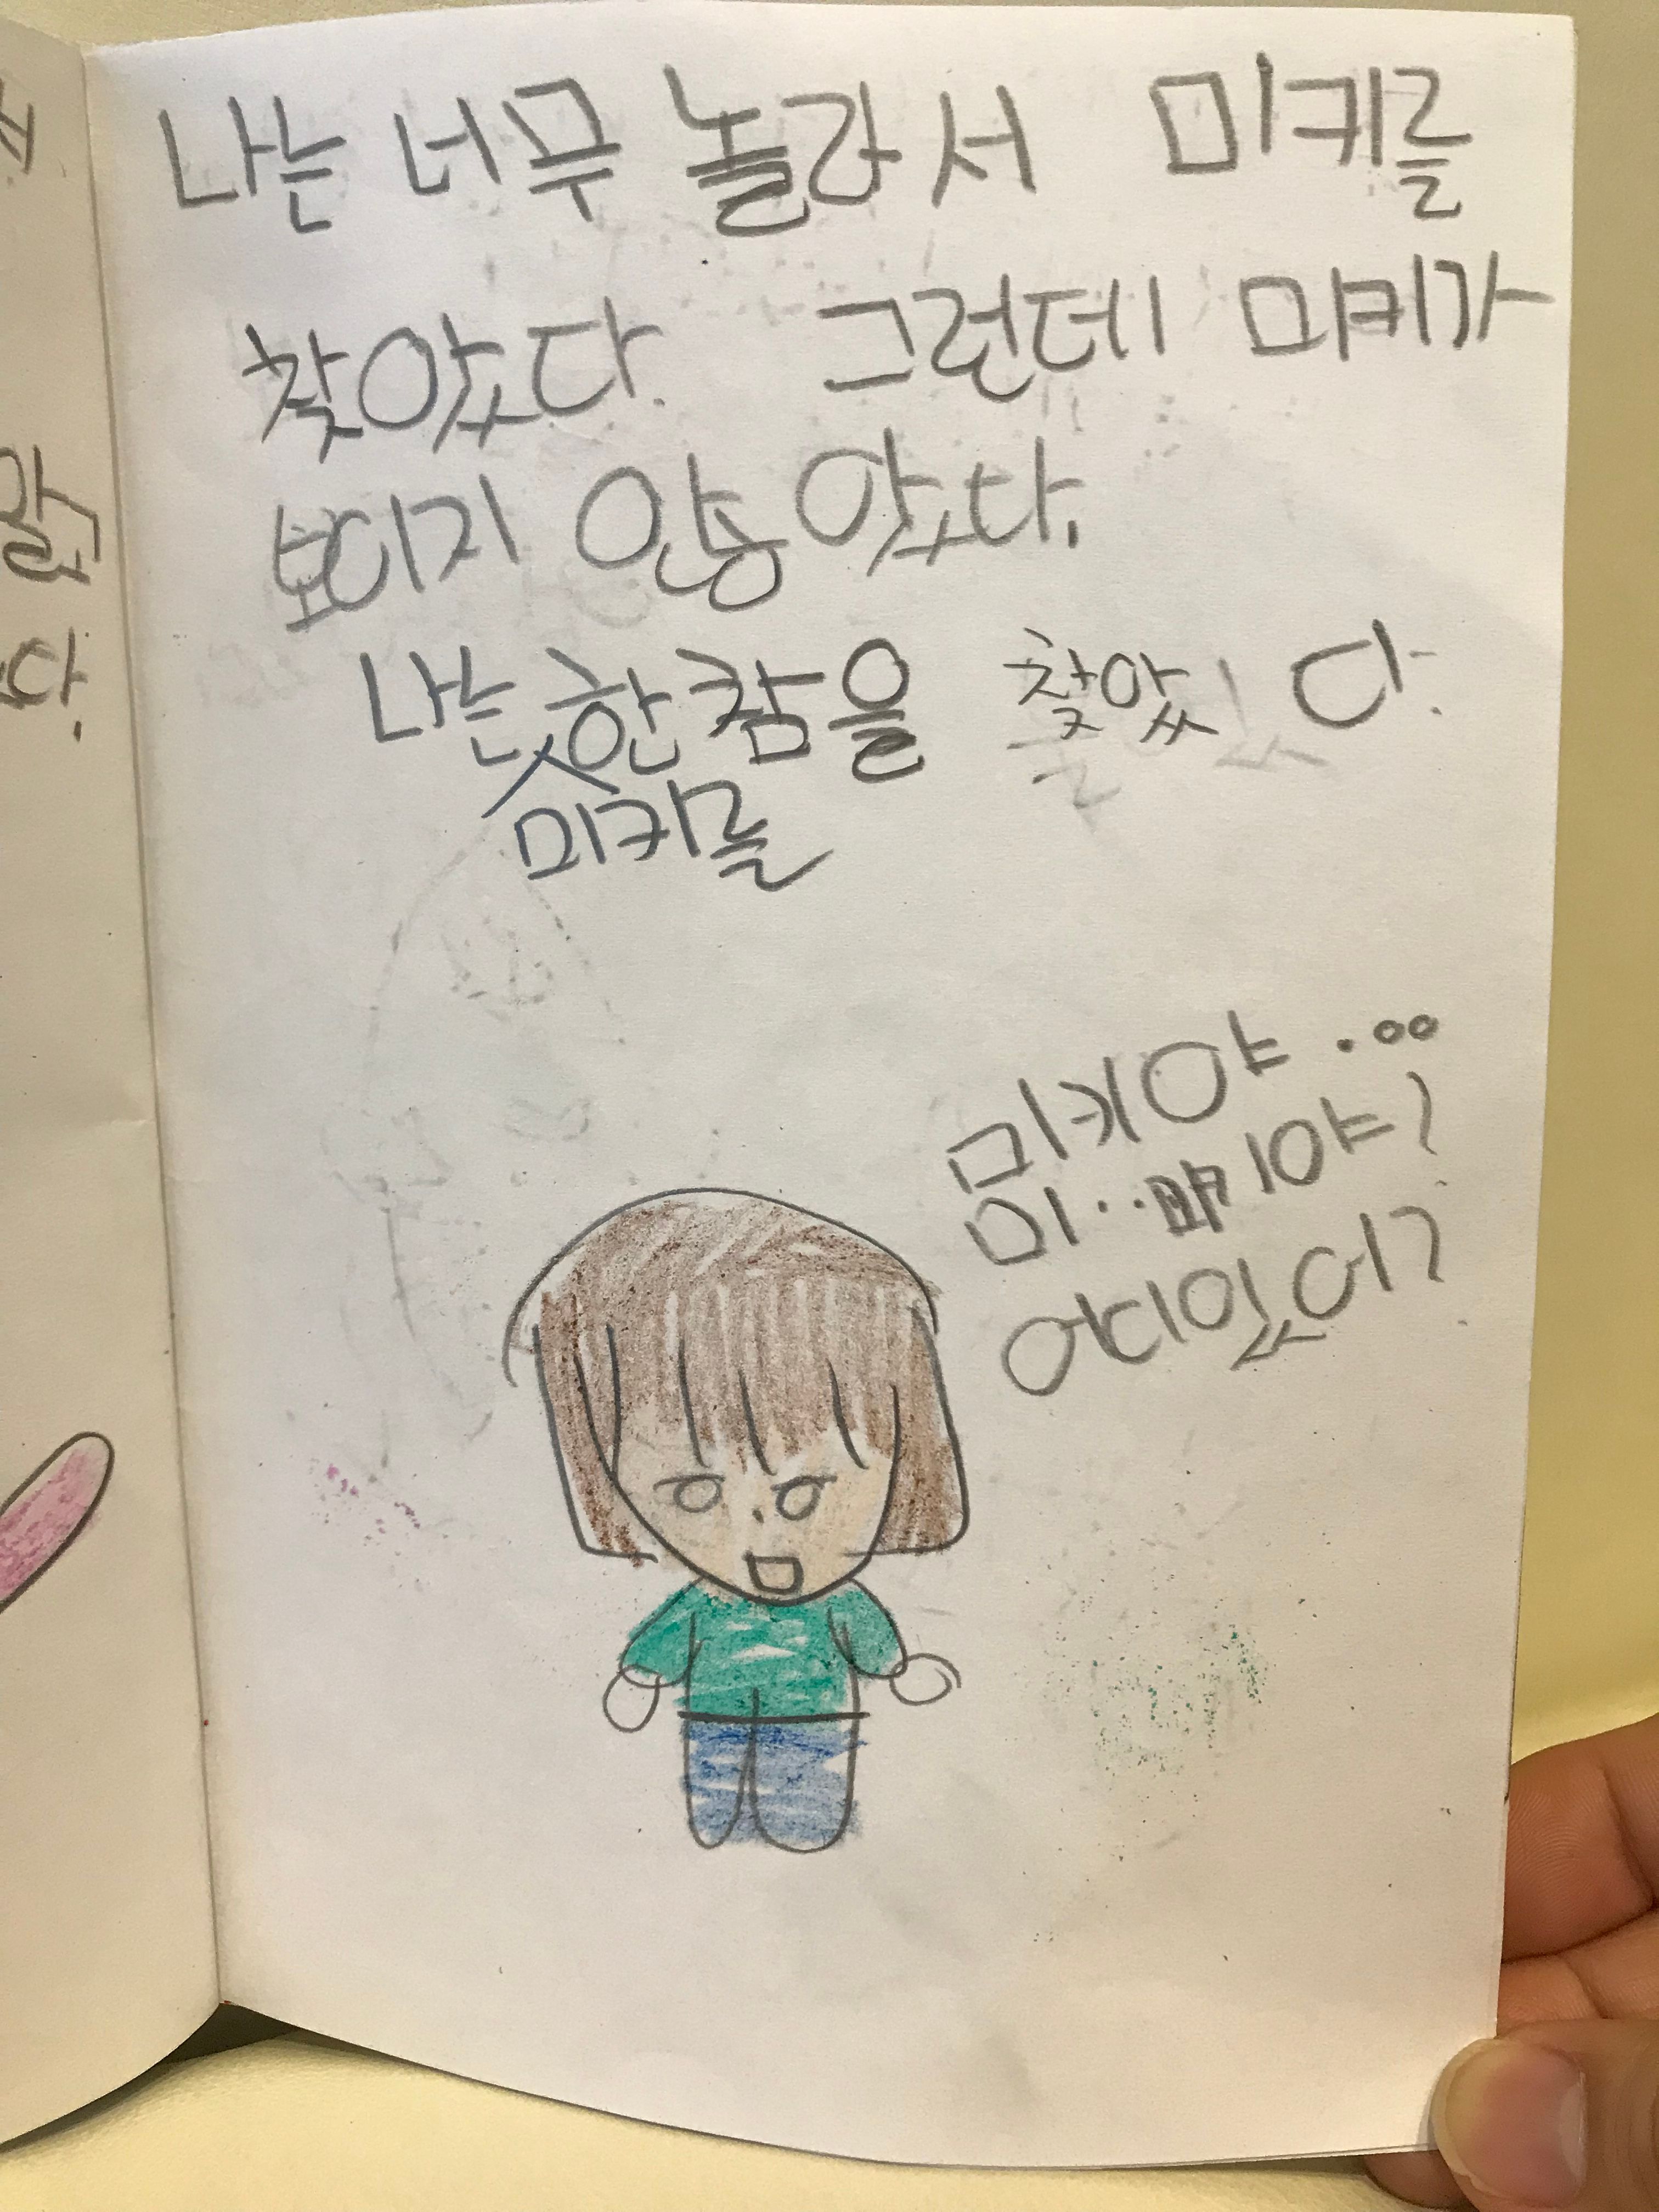 나는 너무 놀라서 미키를
찾았다. 그런데 미키가
보이지 않았다.
나는 한참을 찾았다.
미키를
미키야...
미..야?
어디있어?